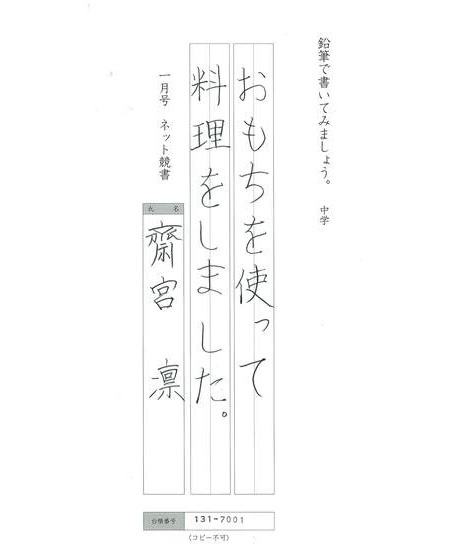 鉛筆で書いてみましょう。　中学
おもちを使って
料理をしました。
一月号　ネット競書
氏名
齋宮　凛
台帳番号　131-7001
(コピー不可)